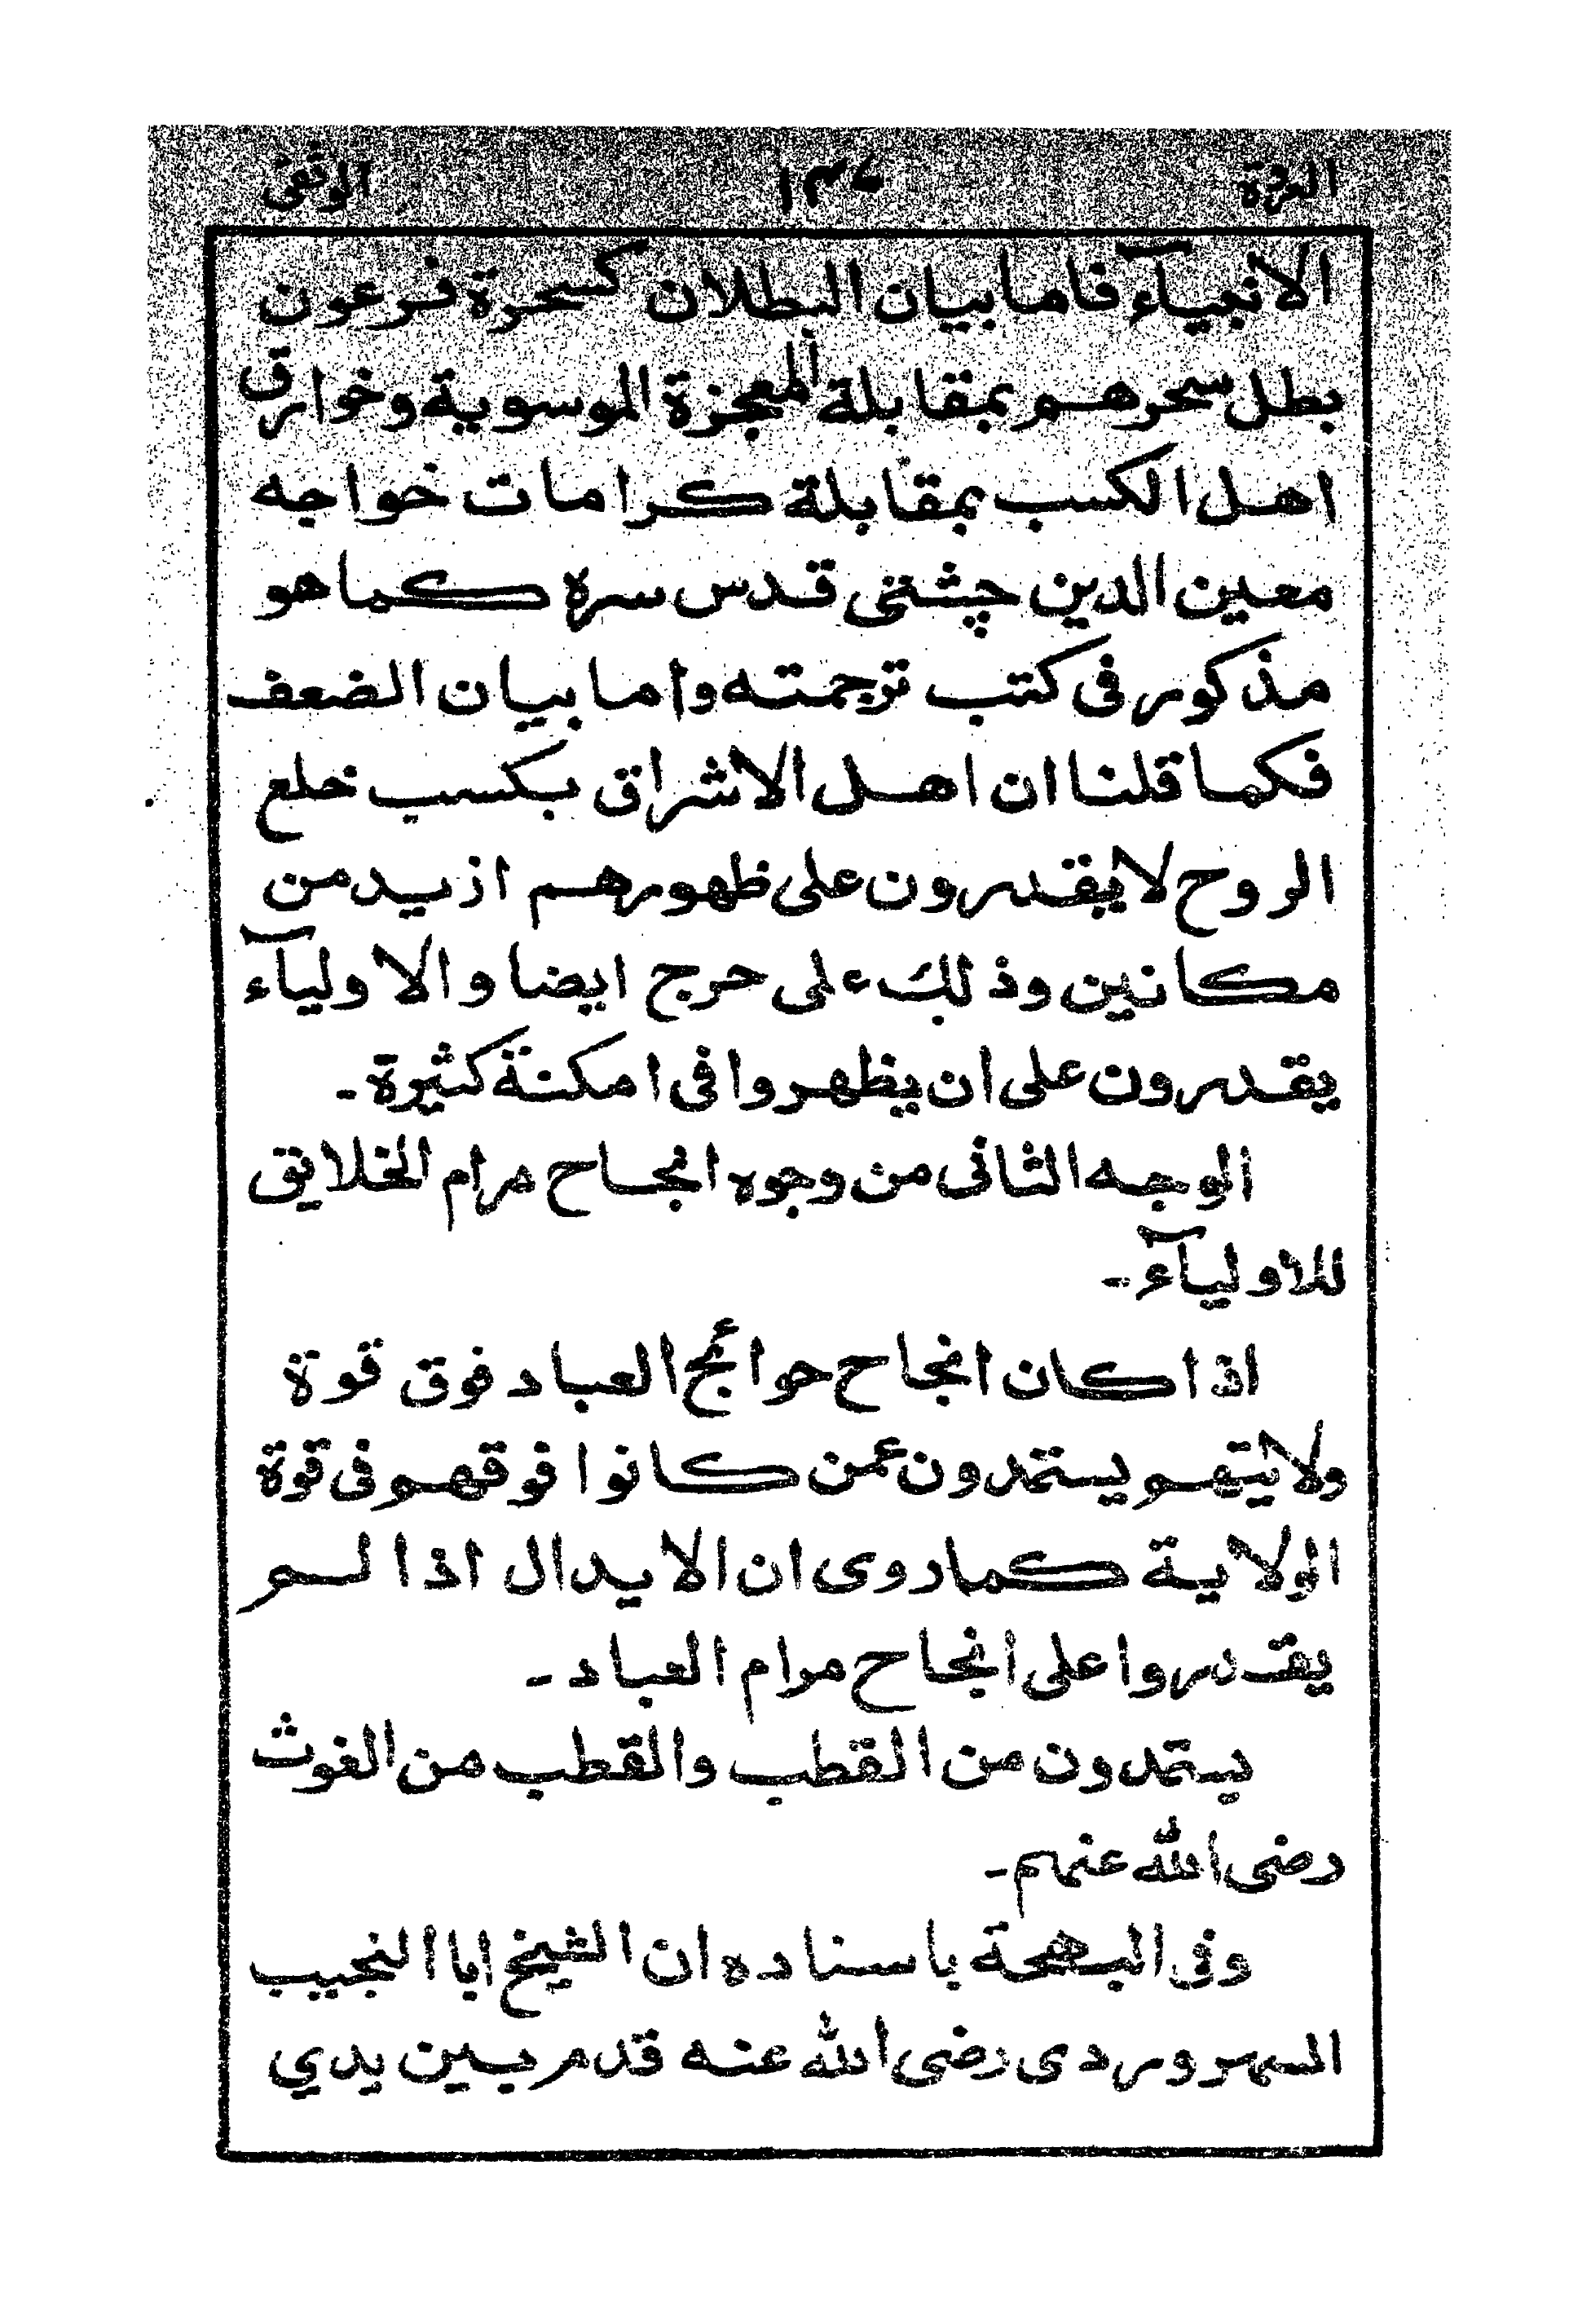 العروة ١٣٧ الوثقى
الانبيآء فاما بيان البطلان كسحرة فرعون
بطل سحرهم بمقابلة المعجزة الموسوية وخوارق
اهل الكسب بمقابلة كرامات خواجه
معين الدين چشتى قدس سره كما هو
مذكور فى كتب ترجمته واما بيان الضعف
فكما قلنا ان اهل الاشراق بكسب خلع
الروح لا يقدرون على ظهورهم ازيد من
مكانين وذلك على حرج ايضا والاوليآء
يقدرون على ان يظهروا فى امكنة كثيرة -
الوجه الثانى من وجوه انجاح مرام الخلايق
للاوليآء -
اذا كان انجاح حوائج العباد فوق قوة
ولايتهم يستمدون عمن كانوا فوقهم فى قوة
الولاية كما روى ان الايدال اذا لم
يقدروا على انجاح مرام العباد -
يستمدون من القطب والقطب من الغوث
رضى الله عنهم -
وفى البهجة باسناده ان الشيخ ابا النجيب
السهروردى رضى الله عنه قدم بين يدي